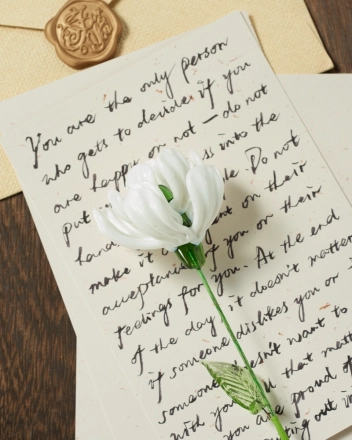 You are the only person
who gets to decide if you
are happy or not — do not
put into the
hand Do not
make it on their
acceptance of you or their
feelings for you. At the end
of the day, it doesn't matter
if someone dislikes you or
someone doesn't want to
with you that matt
you are proud of
ting out in